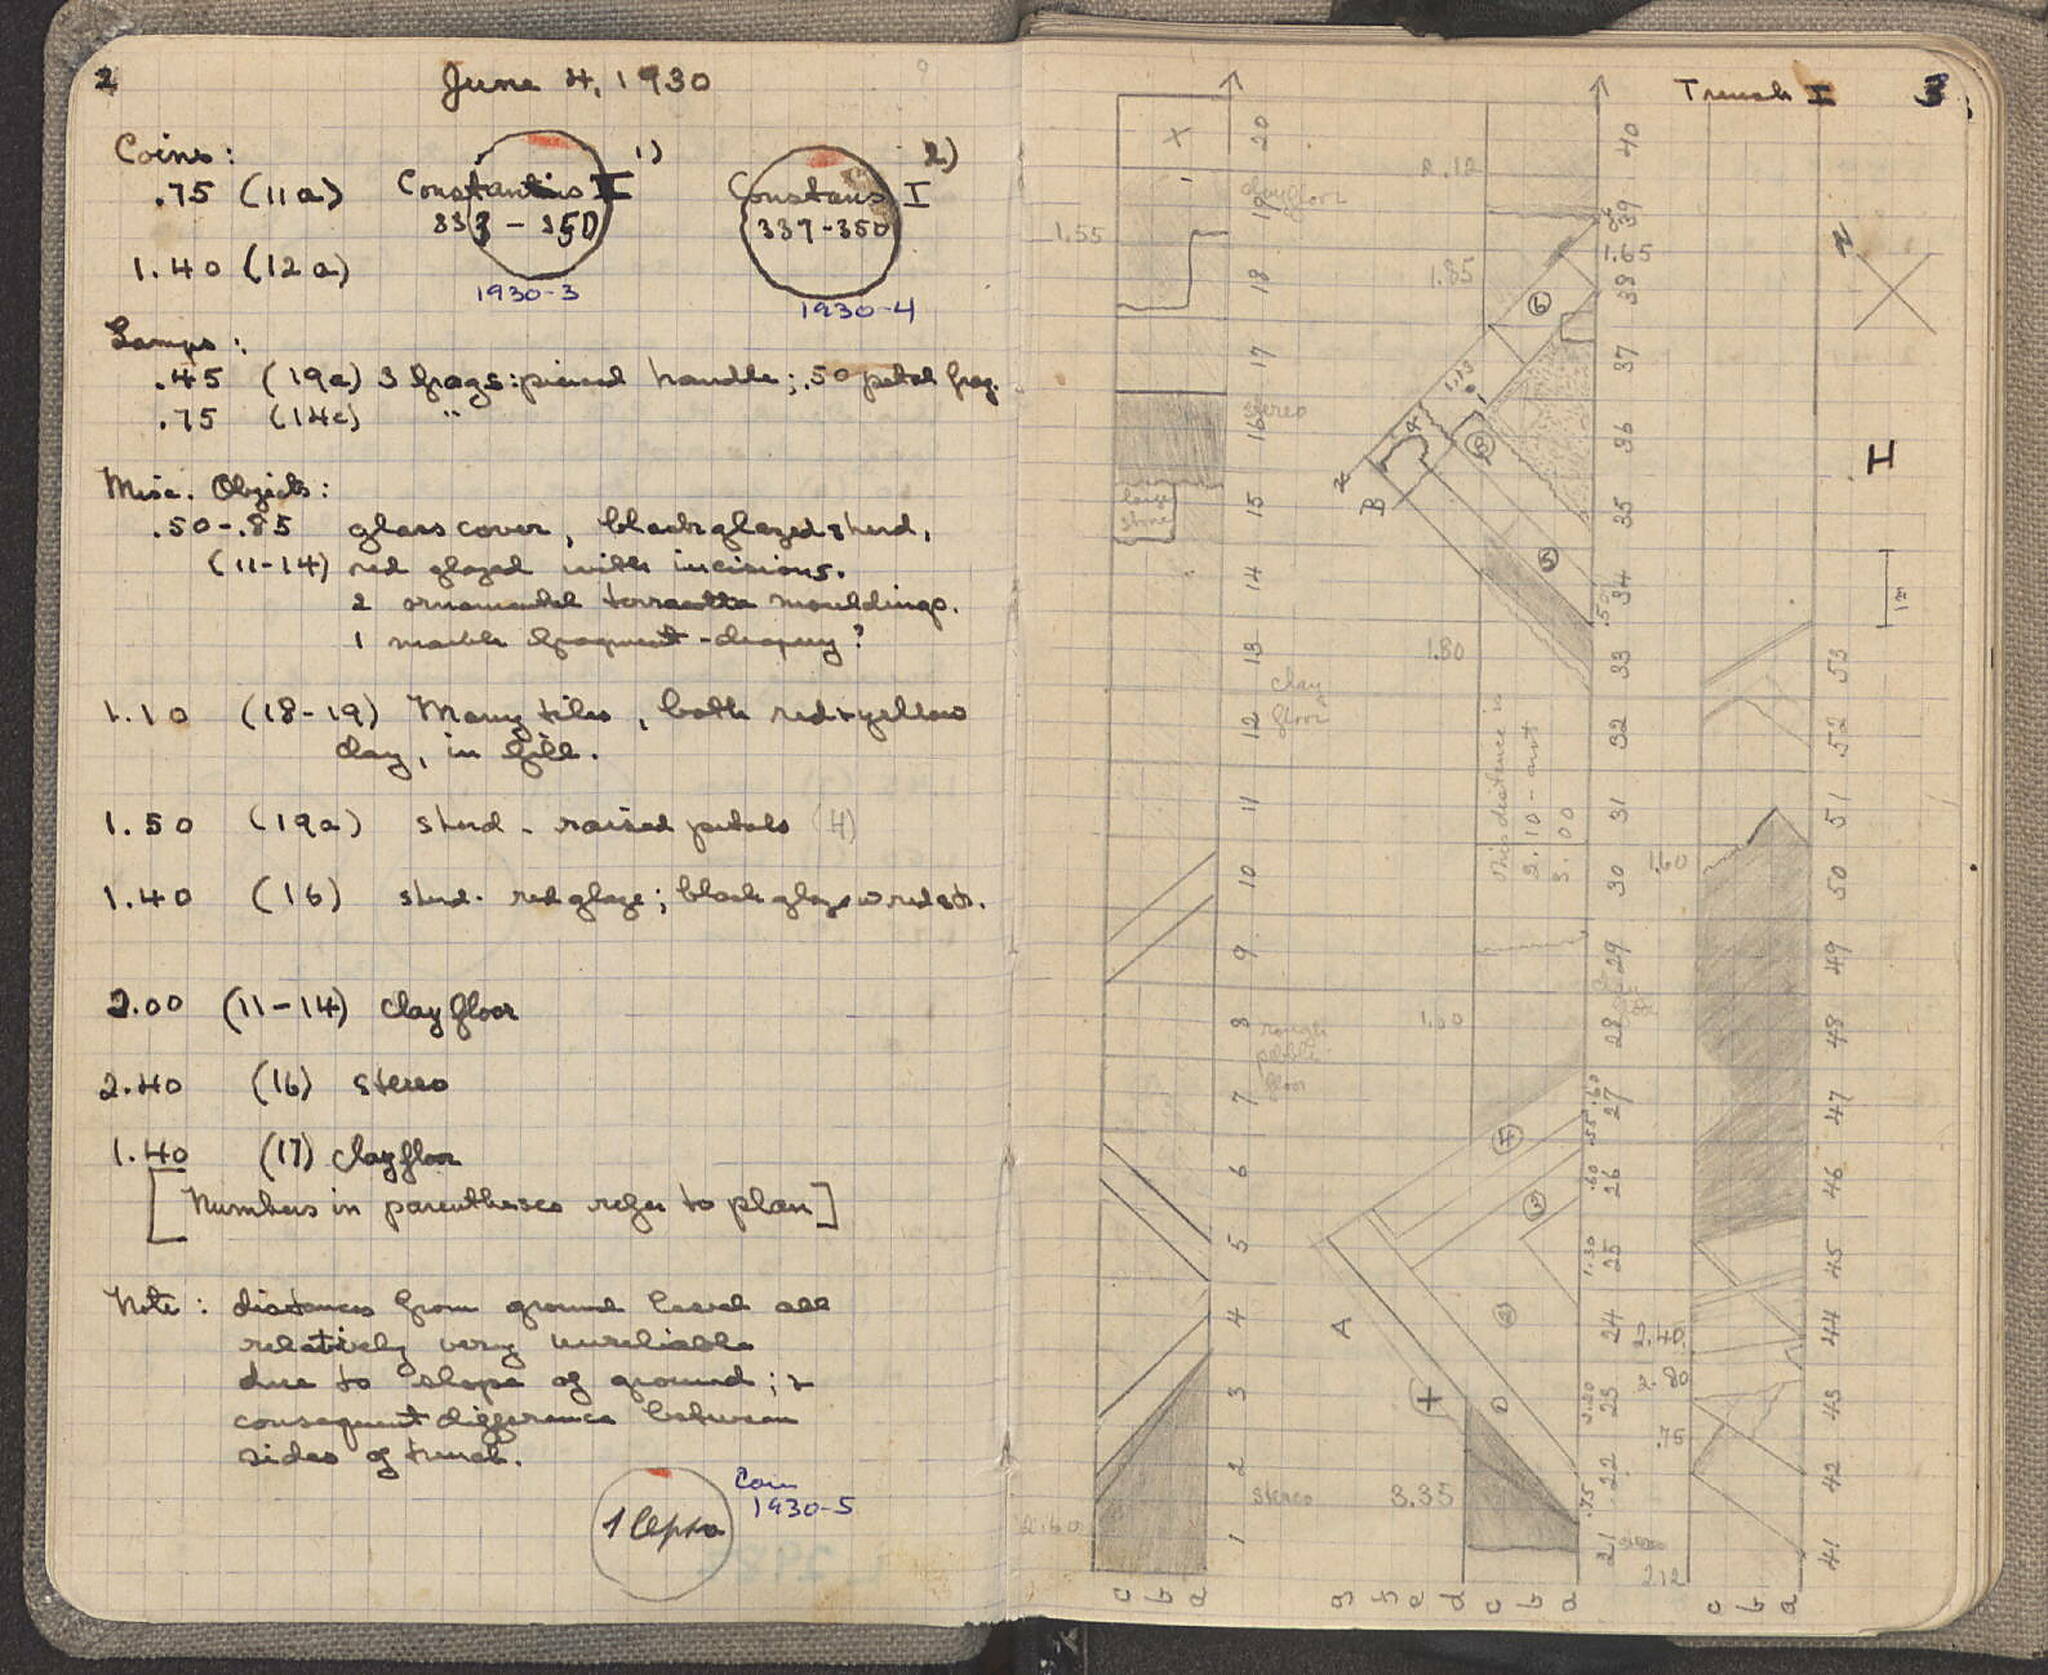 2
June 4, 1930
Coins:
.75 (11a)
1.40 (12a)
Constantius II 1)
337 - 350
1930-3
Constans I 2)
337-350
1930-4
Lamps:
.45 (19a) 3 frags: pierced handle; .50 petal frag.
.75 (14c) "
Misc. Objects:
.50-.85 glass cover, black glazed sherd,
(11-14) red glazed with incisions.
2 ornamental terracotta mouldings.
1 marble fragment - drapery?
1.10 (18-19) Many tiles, both red + yellow
clay, in fill.
1.50 (19a) sherd - raised petals (4)
1.40 (16) sherd - red glaze; black glaze
2.00 (11-14) clay floor
2.40 (16) stereo
1.40 (17) clay floor
[Numbers in parentheses refer to plan]
Note: distances from ground level all
relatively very unreliable
due to slope of ground; +
consequent difference between
sides of trench.
1 lepta
Coin
1930-5
Trench I 3
X
20
19
18
17
16
15
14
13
12
11
10
9
8
7
6
5
4
3
2
1
clay floor
1.55
stereo
large
stone
clay
floor
rough
pebble
floor
stereo
c b a
1.85
1.80
3.35
This distance is
2.10 - not
3.00
B
A
1.13
6
5
4
3
2
1
+
40
39
38
37
36
35
34
33
32
31
30
29
28
27
26
25
24
23
22
21
1.65
.50
.60
.55
.60
1.30
.75
g f e d c b a
1.60
2.40
.75
2.12
53
52
51
50
49
48
47
46
45
44
43
42
41
c b a
N
H
1 m